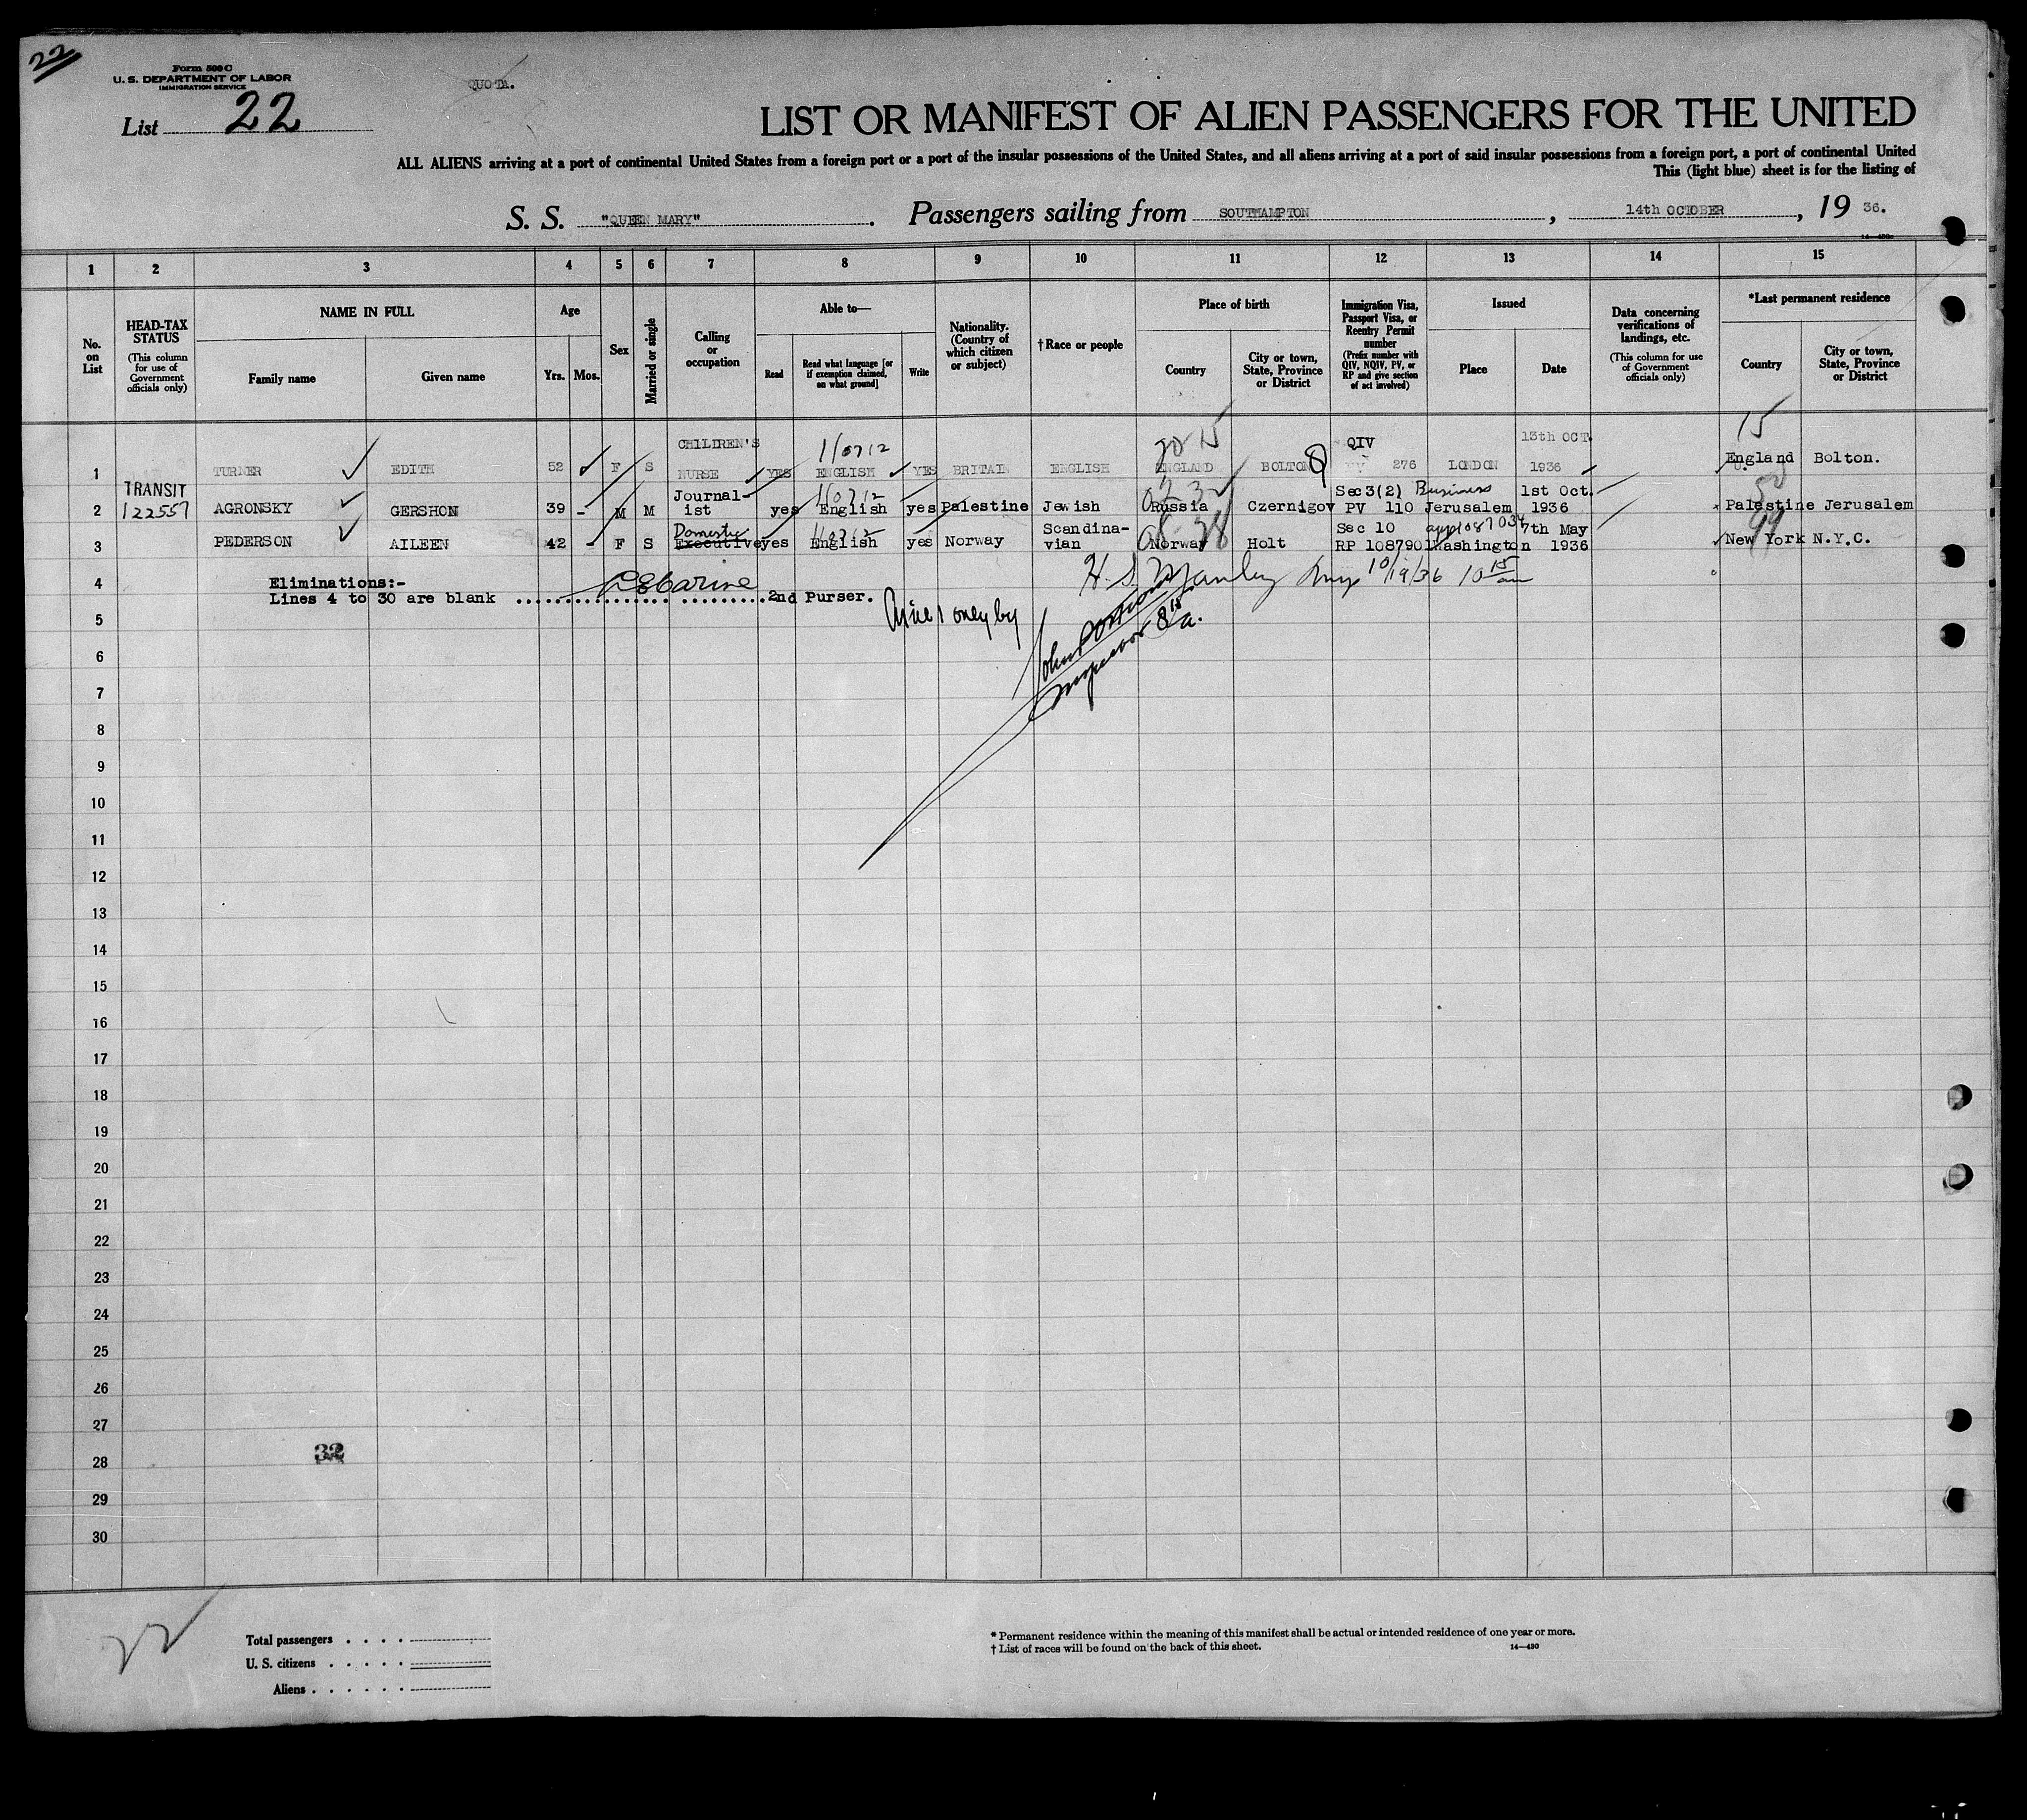 22
Form 500 C
U. S. DEPARTMENT OF LABOR
IMMIGRATION SERVICE
QUOTA.
List 22
LIST OR MANIFEST OF ALIEN PASSENGERS FOR THE UNITED
ALL ALIENS arriving at a port of continental United States from a foreign port or a port of the insular possessions of the United States, and all aliens arriving at a port of said insular possessions from a foreign port, a port of continental United
This (light blue) sheet is for the listing of
S. S. "QUEEN MARY". Passengers sailing from SOUTHAMPTON, 14th OCTOBER, 19 36.
14—430
1 2 3 4 5 6 7 8 9 10 11 12 13 14 15
No. on List
HEAD-TAX STATUS (This column for use of Government officials only)
NAME IN FULL
Family name Given name
Age
Yrs. Mos.
Sex
Married or single
Calling or occupation
Able to—
Read Read what language [or if exemption claimed, on what ground] Write
Nationality. (Country of which citizen or subject)
†Race or people
Place of birth
Country City or town, State, Province or District
Immigration Visa, Passport Visa, or Reentry Permit number (Prefix number with QIV, NQIV, PV, or RP and give section of act involved)
Issued
Place Date
Data concerning verifications of landings, etc. (This column for use of Government officials only)
*Last permanent residence
Country City or town, State, Province or District
20 15 15
1 TURNER EDITH 52 F S CHILDREN'S NURSE YES ENGLISH YES BRITAIN ENGLISH ENGLAND BOLTON QIV 276 LONDON 13th OCT. 1936 England Bolton.
2 TRANSIT 122557 AGRONSKY GERSHON 39 - M M Journalist yes English yes Palestine Jewish Russia Czernigov Sec 3(2) Business PV 110 Jerusalem 1st Oct. 1936 Palestine Jerusalem
3 PEDERSON AILEEN 42 - F S Domestic Executive yes English yes Norway Scandinavian Norway Holt Sec 10 RP 1087901 Washington 7th May 1936 New York N.Y.C.
4 Eliminations:-
Lines 4 to 30 are blank 2nd Purser.
H. S. Manley Insp 10/19/36 10 15 am
only by
John
Inspector 8 15 a.
5
6
7
8
9
10
11
12
13
14
15
16
17
18
19
20
21
22
23
24
25
26
27
32
28
29
30
22
Total passengers
U. S. citizens
Aliens
* Permanent residence within the meaning of this manifest shall be actual or intended residence of one year or more.
† List of races will be found on the back of this sheet. 14—430